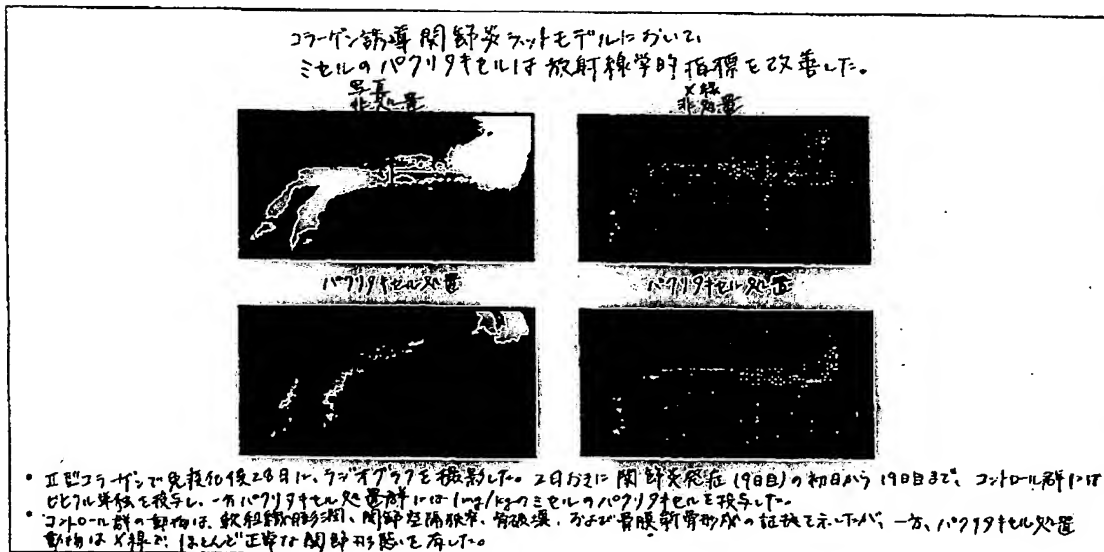 コラーゲン誘導関節炎ラットモデルにおいて、
ミセルのパクリタキセルは放射線学的指標を改善した。
写真
非処置
X線
非処置
パクリタキセル処置
パクリタキセル処置
• II型コラーゲンで免疫化後28日に、ラジオグラフを撮影した。2日おきに関節炎発症(9日目)の初日から19日目まで、コントロール群には
ビヒクル単独を投与し、一方パクリタキセル処置群には1mg/kgのミセルのパクリタキセルを投与した。
• コントロール群の動物は、軟組織膨潤、関節空隔狭窄、骨破壊、および骨膜新骨形成の証拠を示したが、一方、パクリタキセル処置
動物はX線で、ほとんど正常な関節形態を有した。